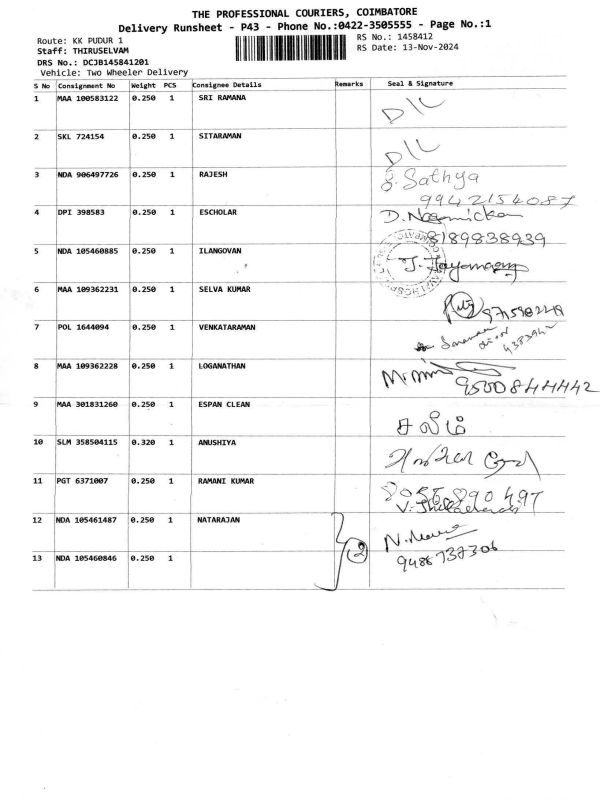 THE PROFESSIONAL COURIERS, COIMBATORE
Delivery Runsheet - P43 - Phone No.:0422-3505555 - Page No.:1
Route: KK PUDUR 1
RS No.: 1458412
Staff: THIRUSELVAM
RS Date: 13-Nov-2024
DRS No.: DCJB145841201
Vehicle: Two Wheeler Delivery
S No Consignment No Weight PCS Consignee Details Remarks Seal & Signature
1 MAA 100583122 0.250 1 SRI RAMANA D/L
2 SKL 724154 0.250 1 SITARAMAN D/L
3 NDA 906497726 0.250 1 RAJESH g. Sathya
9942154087
4 DPI 398583 0.250 1 ESCHOLAR
8189838939
5 NDA 105460885 0.250 1 ILANGOVAN
6 MAA 109362231 0.250 1 SELVA KUMAR
7 POL 1644094 0.250 1 VENKATARAMAN
8 MAA 109362228 0.250 1 LOGANATHAN
9500844442
9 MAA 301831260 0.250 1 ESPAN CLEAN சலீம்
10 SLM 358504115 0.320 1 ANUSHIYA
11 PGT 6371007 0.250 1 RAMANI KUMAR 8056890497
12 NDA 105461487 0.250 1 NATARAJAN
2
9486737306
13 NDA 105460846 0.250 1